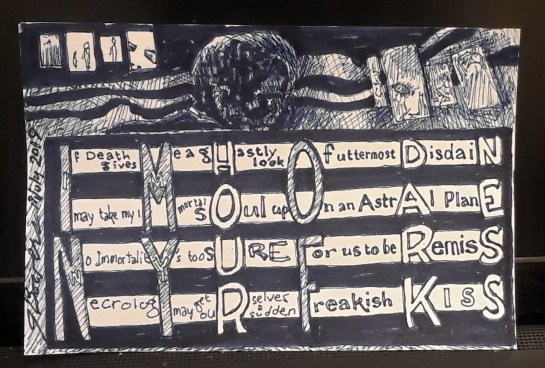 If Death gives Me a gHastly look Of uttermost DisdaiN
I may take my iMmortal SOul up On an AstrAl PlanE
No ImmortalitY's too sURE For us to be RemisS
NecrologY may get OuRselves sudden freakish KisS